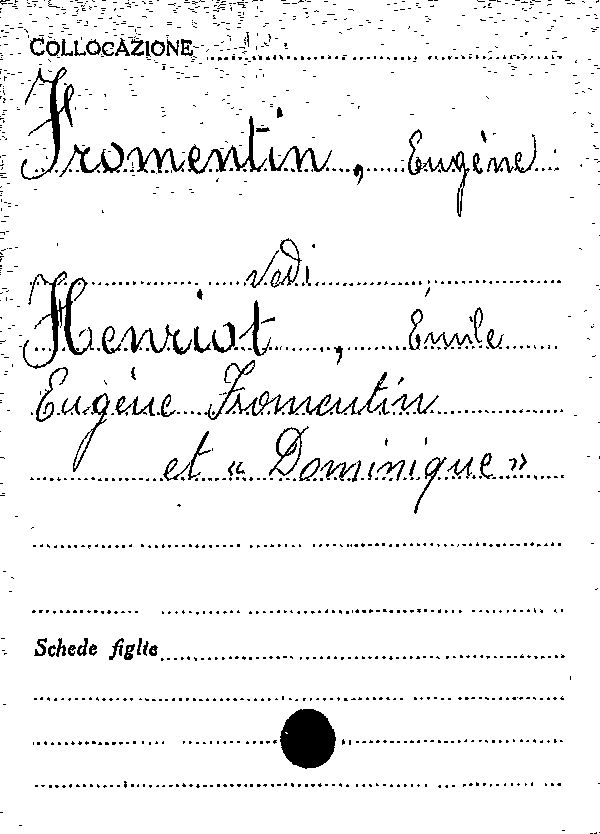 COLLOCAZIONE
Fromentin, Eugène
vedi
Henriot, Émile
Eugène Fromentin
et « Dominique »
Schede figlie